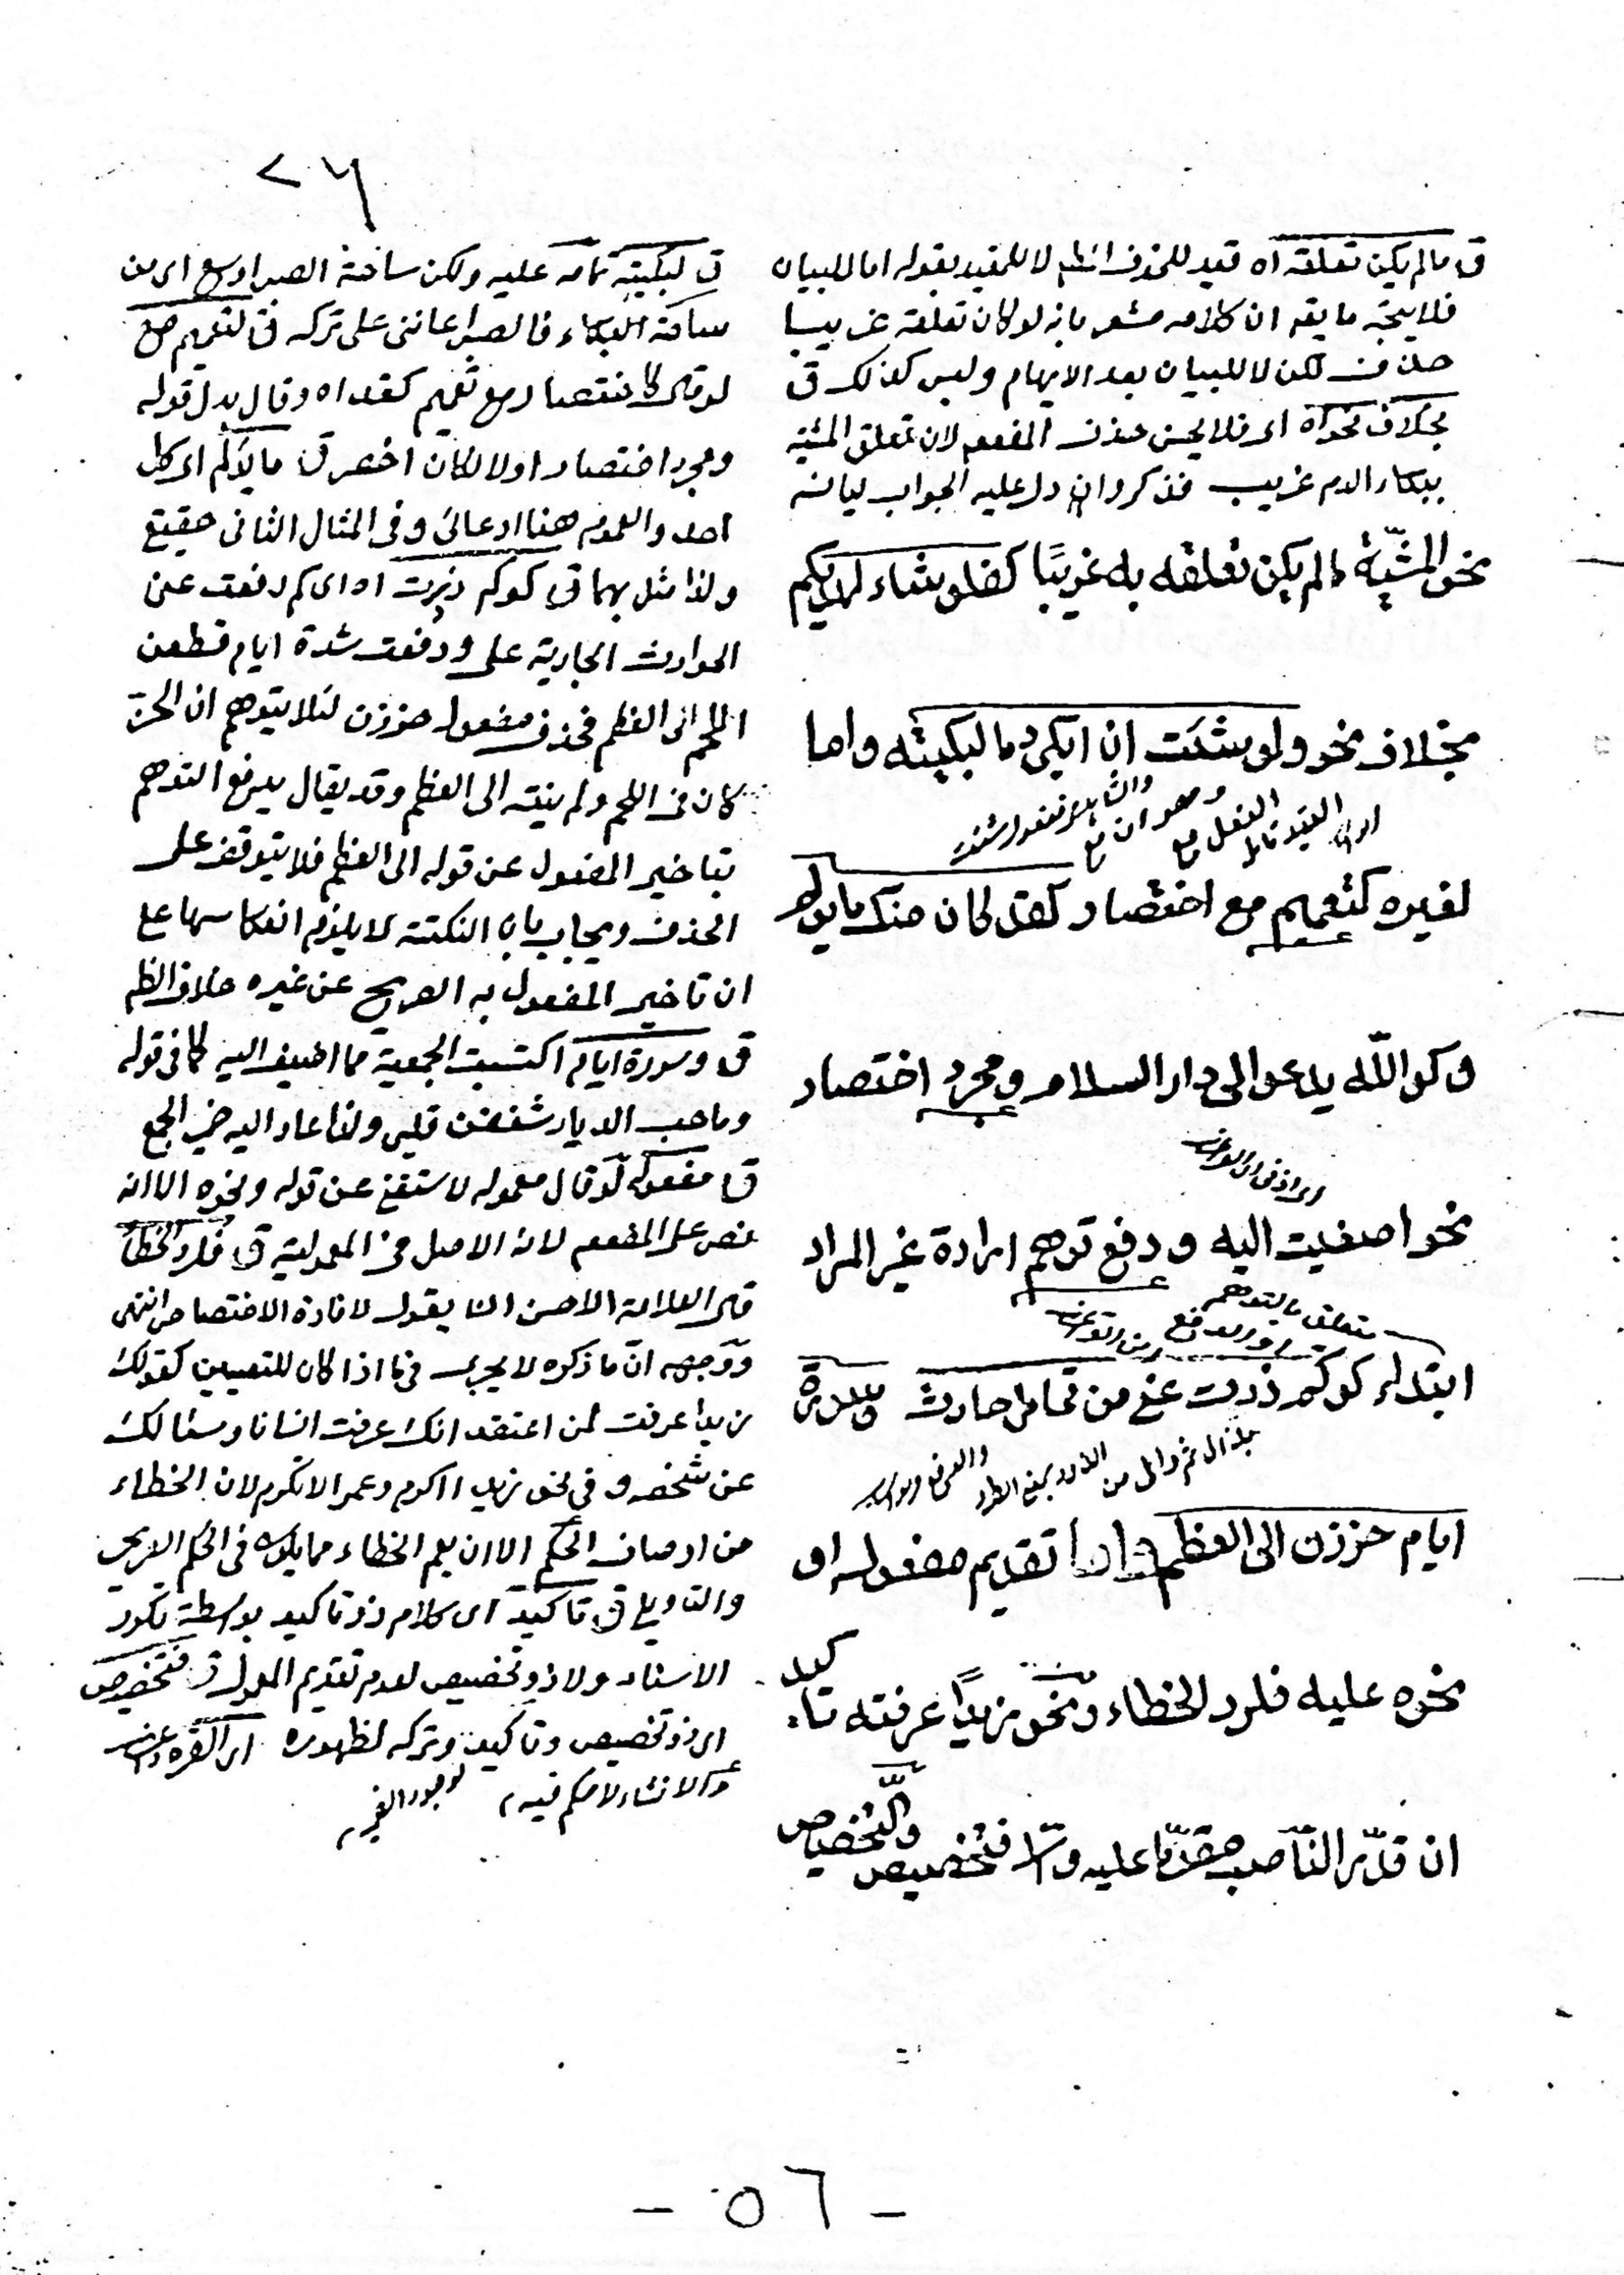 ٢٦
ق ما لم يكن تعلقه اه قيد للحذف لا للمقيد بقوله اما للبيان
فلا يتجه ما يقه ان كلامه مشعر بانه لو كان تعلقه غريبا
حذف لكن لا للبيان بعد الابهام وليس كذلك ق
بخلاف نحو اه اى فلا يحسن حذف المفعم لان تعلق المشية
ببكاء الدم غريب فذكر وان دل عليه الجواب لبيانه
نحو المشيّة ما لم يكن تعلقه به غريبًا كفلو شاء لهديكم
بخلاف نحو ولو شئت ان ابكى دما لبكيته واما
لغيره كتعميم مع اختصار كقد كان منك ما يؤلم
و كو اللّه يدعو الى دار السلام و مجرد اختصار
نحو اصغيت اليه و دفع توهم ارادة غير المراد
متعلق بالتوهم
ابتداء كوكم ذدت عنى من تحامل حادث وسورة
ايام حززن الى العظم واما تقديم مفعوله او
نحوه عليه فلرد الخطاء ونحو زيدًا عرفته تأكيد
ان قدّر النّاصب مقدّمًا عليه والّا فتخصيص
والتّخصيص
ق لبكيته تمامه عليه ولكن ساحة الصبر اوسع اى من
ساحة البكاء فالصبر اعاننى على تركه ق لتعميم مع
لو قال كاختصار مع تعميم كقد اه وقال بدل قوله
ومجرد اختصار اولا لكان اخصر ق ما يؤلم اى كل
احد والعموم هنا ادعائى وفى المثال الثانى حقيقى
ولذا مثل بهما ق كوكم ذدت اه اى كم دفعت عنى
الحوادث الجارية على ودفعت شدة ايام قطعن
اللحم الى العظم فحذف مفعول حززن لئلا يتوهم ان الحزّ
كان فى اللحم ولم ينته الى العظم وقد يقال يدفع التوهم
بتاخير المفعول عن قوله الى العظم فلا يتوقف على
الحذف ويجاب بان النكتة لا يلزم انعكاسها على
ان تاخير المفعول به الصريح عن غيره خلاف الظم
ق وسورة ايام اكتسبت الجمعية مما اضيف اليه كما فى قوله
وما حب الديار شغفن قلبى ولذا عاد اليه ضمير الجمع
ق مفعوله لو قال معموله لاستغنى عن قوله ونحوه الا انه
نص على المفعم لانه الاصل فى المعمولية ق فلرد الخطأ
قال العلامة الاحسن ان يقول لافادة الاختصاص انتهى
ووجهه انّ ما ذكره لا يجرى فى ما اذا كان للتعيين كقولك
زيدا عرفت لمن اعتقد انك عرفت انسانا وسئالك
عن شخصه و فى نحو زيدا اكرم وعمرا لا تكرم لان الخطاء
من اوصاف الحكم الا ان يعم الخطاء مما يكون فى الحكم الصريحى
والتاويلى ق تاكيد اى كلام ذو تاكيد بواسطة تكرر
الاسناد ولا ذو تخصيص لعدم تقديم المعمول ق فتخصيص
اى ذو تخصيص وتاكيد وتركه لظهوره
والانشاء لا حكم فيه
- ٥٦ -